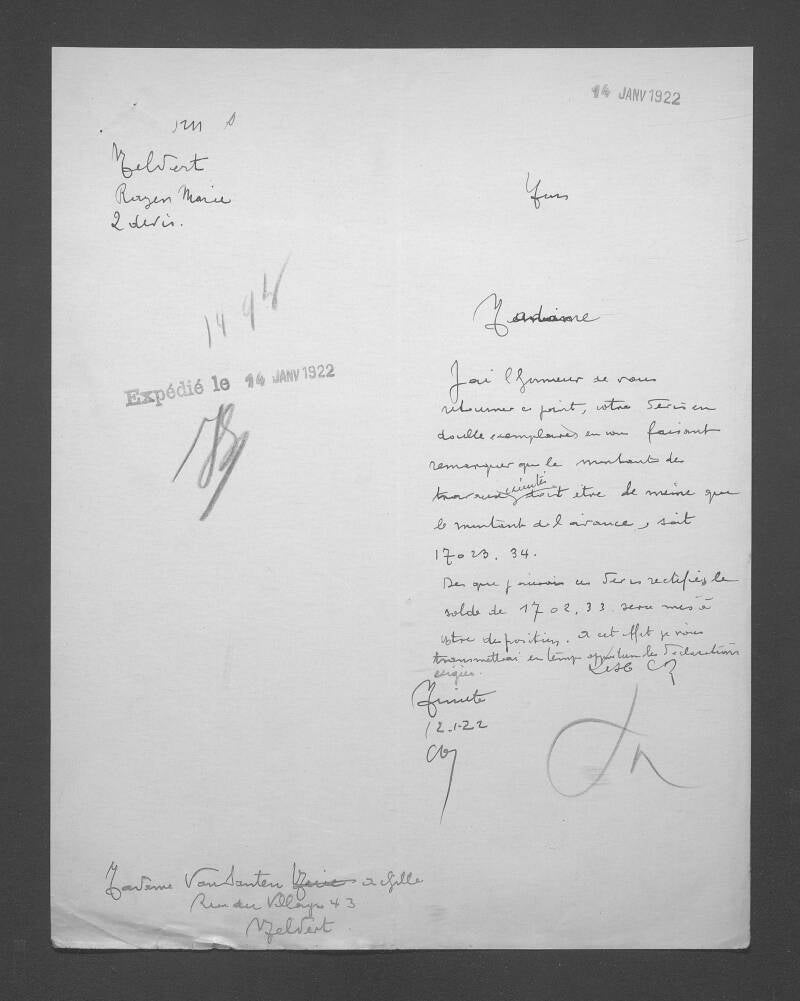 14 JANV 1922
Melvert
Rogen Marie
2 devis.
Madame
14
Expédié le 14 JANV 1922
J'ai l'honneur de vous
retourner ci joint, votre devis en
double exemplaires en vous faisant
remarquer que le montant des
travaux exécutés doit être de même que
le montant de l'avance, soit
17023.34.
Dès que j'aurai ces devis rectifiés, le
solde de 1702.33 sera mis à
votre disposition. A cet effet je vous
transmettrai en temps opportun les déclarations
exigées.
Minute
12.1.22
Madame Van Santen Achille
Rue du Village 43
Melvert